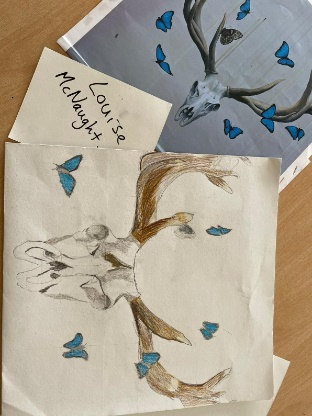 Louise
McNaught